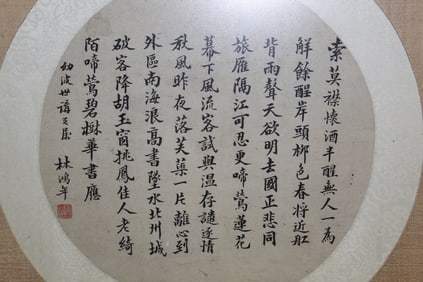 索莫襟懷酒半醒無人一為
解餘酲岸頭柳色春將近舡
背雨聲天欲明去國正悲同
旅雁隔江可忍更啼鶯蓮花
幕下風流客試與溫存譴逐情
秋風昨夜落芙蕖一片離心到
外區南海浪高書墜水北州城
破客降胡玉窗挑鳳佳人老綺
陌啼鶯碧樹華書應
幼波世講之屬
林鴻年